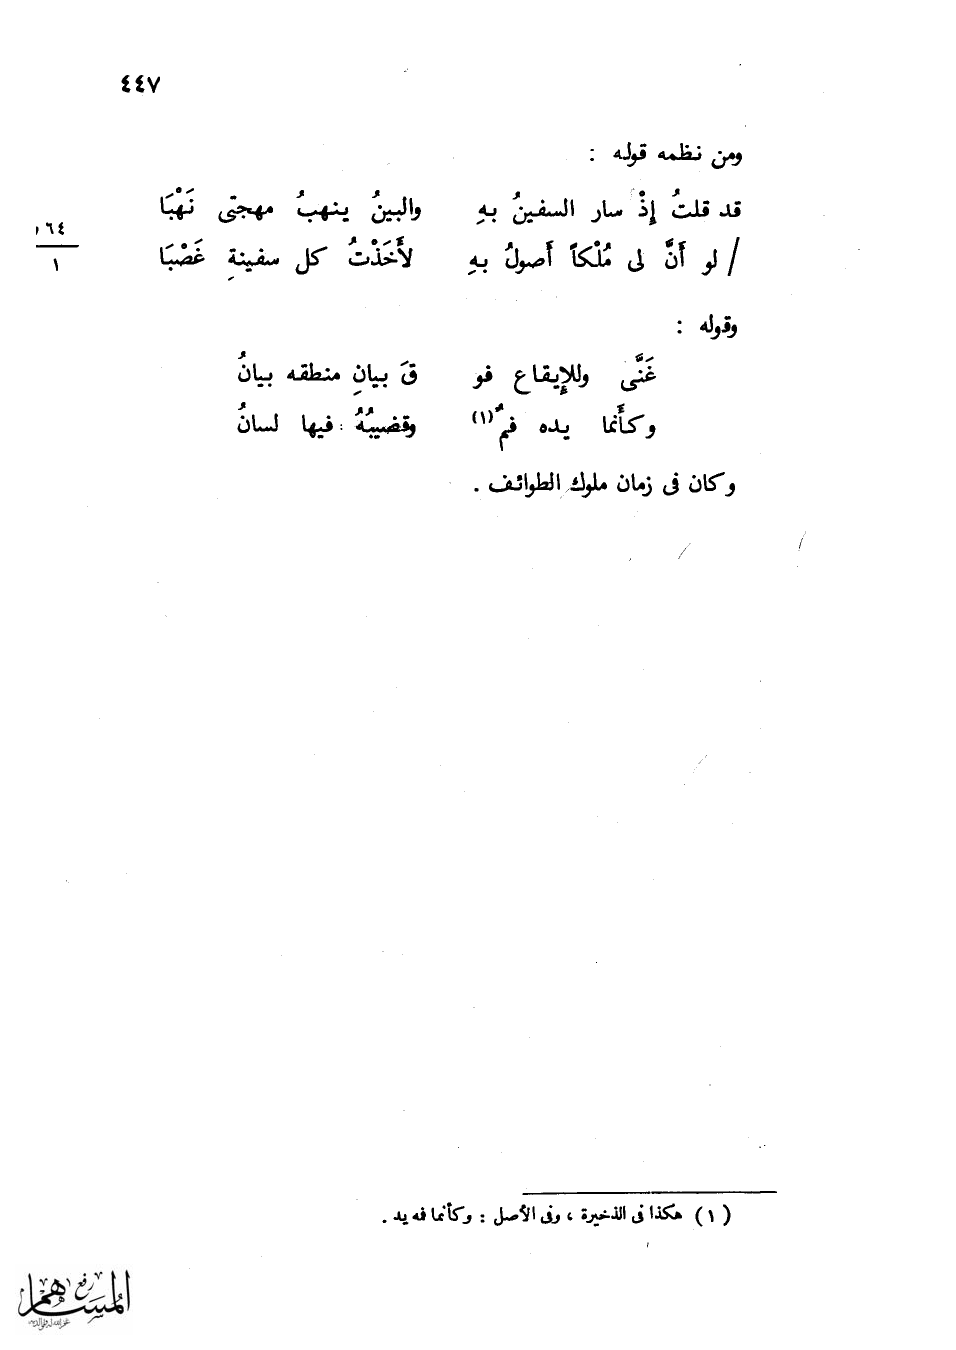 ٤٤٧
ومن نظمه قوله :
قد قلتُ إِذْ سار السفينُ بهِ والبينُ ينهبُ مهجتى نَهْبَا
/ لو أَنَّ لى مُلْكاً أَصولُ بهِ لأَخَذْتُ كل سفينةٍ غَصْبَا
١٦٤
١
وقوله :
غَنَّى وللإِيقاع فو قَ بيانِ منطقه بيانُ
وكأَنما يده فمٌ (١) وقضيبُهُ فيها لسانُ
وكان فى زمان ملوك الطوائف .
(١) هكذا فى الذخيرة ، وفى الأصل : وكأنما فمه يد .
رفع
المساهم